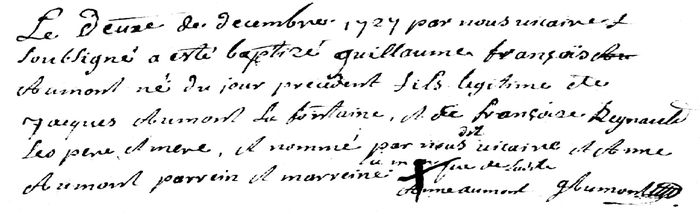 Le deuxe de decembre 1727 par nous vicaire
soubsigné a esté baptizé guillaume françois
Aumont né du jour precedent fils legitime de
Jacques Aumont La fontaine, et de françoise Reynauld
ses pere et mere, et nommé par nous dit vicaire et Anne
Aumont parrein et marreine la
Anne aumont gAumont